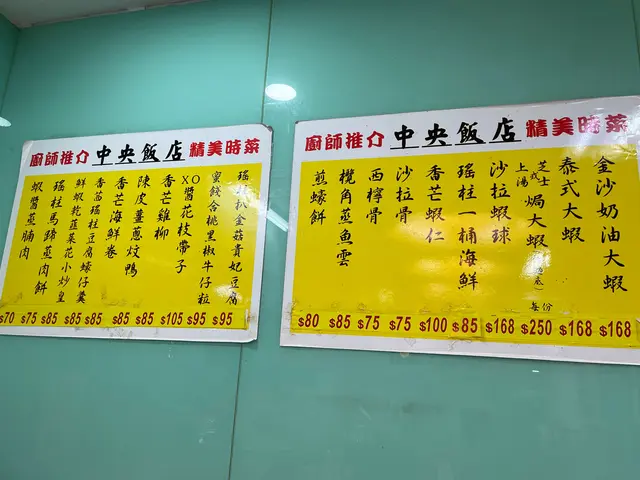 廚師推介 中央飯店 精美時菜
金沙奶油大蝦 $168
泰式大蝦 $168
芝士或上湯焗大蝦 每份 $250
沙拉蝦球 $168
瑤柱一桶海鮮 $85
香芒蝦仁 $100
沙拉骨 $75
西檸骨 $75
欖角蒸魚雲 $85
煎蠔餅 $80
廚師推介 中央飯店 精美時菜
瑤柱扒金菇貴妃豆腐 $95
蜜餞合桃黑椒牛仔粒 $95
XO醬花枝帶子 $105
香芒雞柳 $85
陳皮薑蔥炆鴨 $85
香芒海鮮卷 $85
香茜瑤柱豆腐蠔仔羹 $85
鮮蝦乾韮菜花小炒皇 $85
瑤柱馬蹄蒸肉餅 $75
蝦醬蒸腩肉 $70